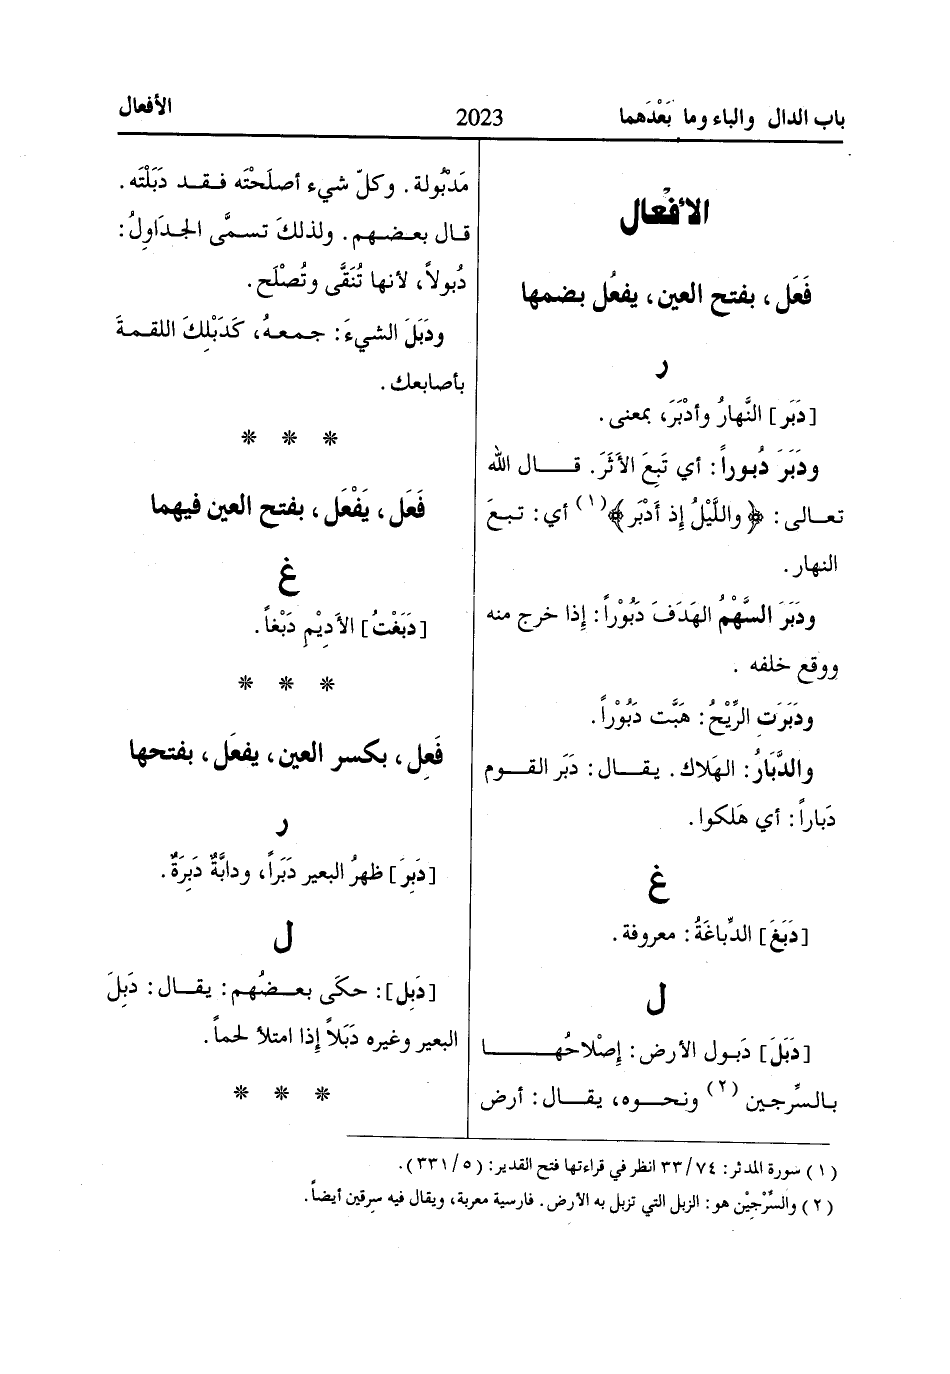 باب الدال والباء وما بَعْدَهما
2023
الأفعال
الأفْعال
فَعَل، بفتح العين، يفعُل بضمها
ر
[دَبَر] النَّهارُ وأدْبَرَ، بمعنى.
ودَبَرَ دُبوراً: أي تَبِعَ الأَثَرَ. قـــال الله
تعـــالى: ﴿واللَّيْلُ إذ أَدْبَر﴾(١) أي: تبـعَ
النهار.
ودَبَرَ السَّهْمُ الهَدَفَ دَبُوْراً: إذا خرج منه
ووقع خلفه .
ودَبَرَت الرِّيْحُ: هَبَّت دَبُوْراً.
والدَّبَارُ: الهَلاك. يقـــال: دَبَر القـــوم
دَباراً: أي هَلكوا.
غ
[دَبَغَ] الدِّباغَةُ: معروفة.
ل
[دَبَلَ] دَبـول الأرض: إصْلاحُهـــــا
بالسِّرجـين (٢) ونحـــوه، يقـــال: أرض
مَدْبُولة. وكلّ شيء أصلَحْتَه فـقـد دَبَلْتَه.
قـال بعـضـهم. ولذلكَ تسمَّى الجـدَاوِلُ:
دُبولاً، لأنها تُنَقَّى وتُصْلَح.
ودَبَلَ الشيءَ: جـمـعـهُ، كَدَبْلِكَ اللقـمـةَ
بأصابعك.
* * *
فَعَل، يَفْعَل، بفتح العين فيهما
غ
[دَبَغْتُ] الأدِيْمِ دَبْغاً.
* * *
فَعِل، بكسر العين، يفعَل، بفتحها
ر
[دَبِرَ] ظهرُ البعير دَبَراً، ودابَّةٌ دَبِرَةٌ.
ل
[دَبِل]: حـكَى بعـــضُهـم: يقـــال: دَبِلَ
البعير وغيره دَبَلاً إذا امتلأ لحماً.
* * *
(١) سورة المدثر: ٧٤/٣٣ انظر في قراءتها فتح القدير: (٥/٣٣١).
(٢) والسِّرْجِيْن هو: الزبل التي تزبل به الأرض. فارسية معربة، ويقال فيه سرقين أيضاً.